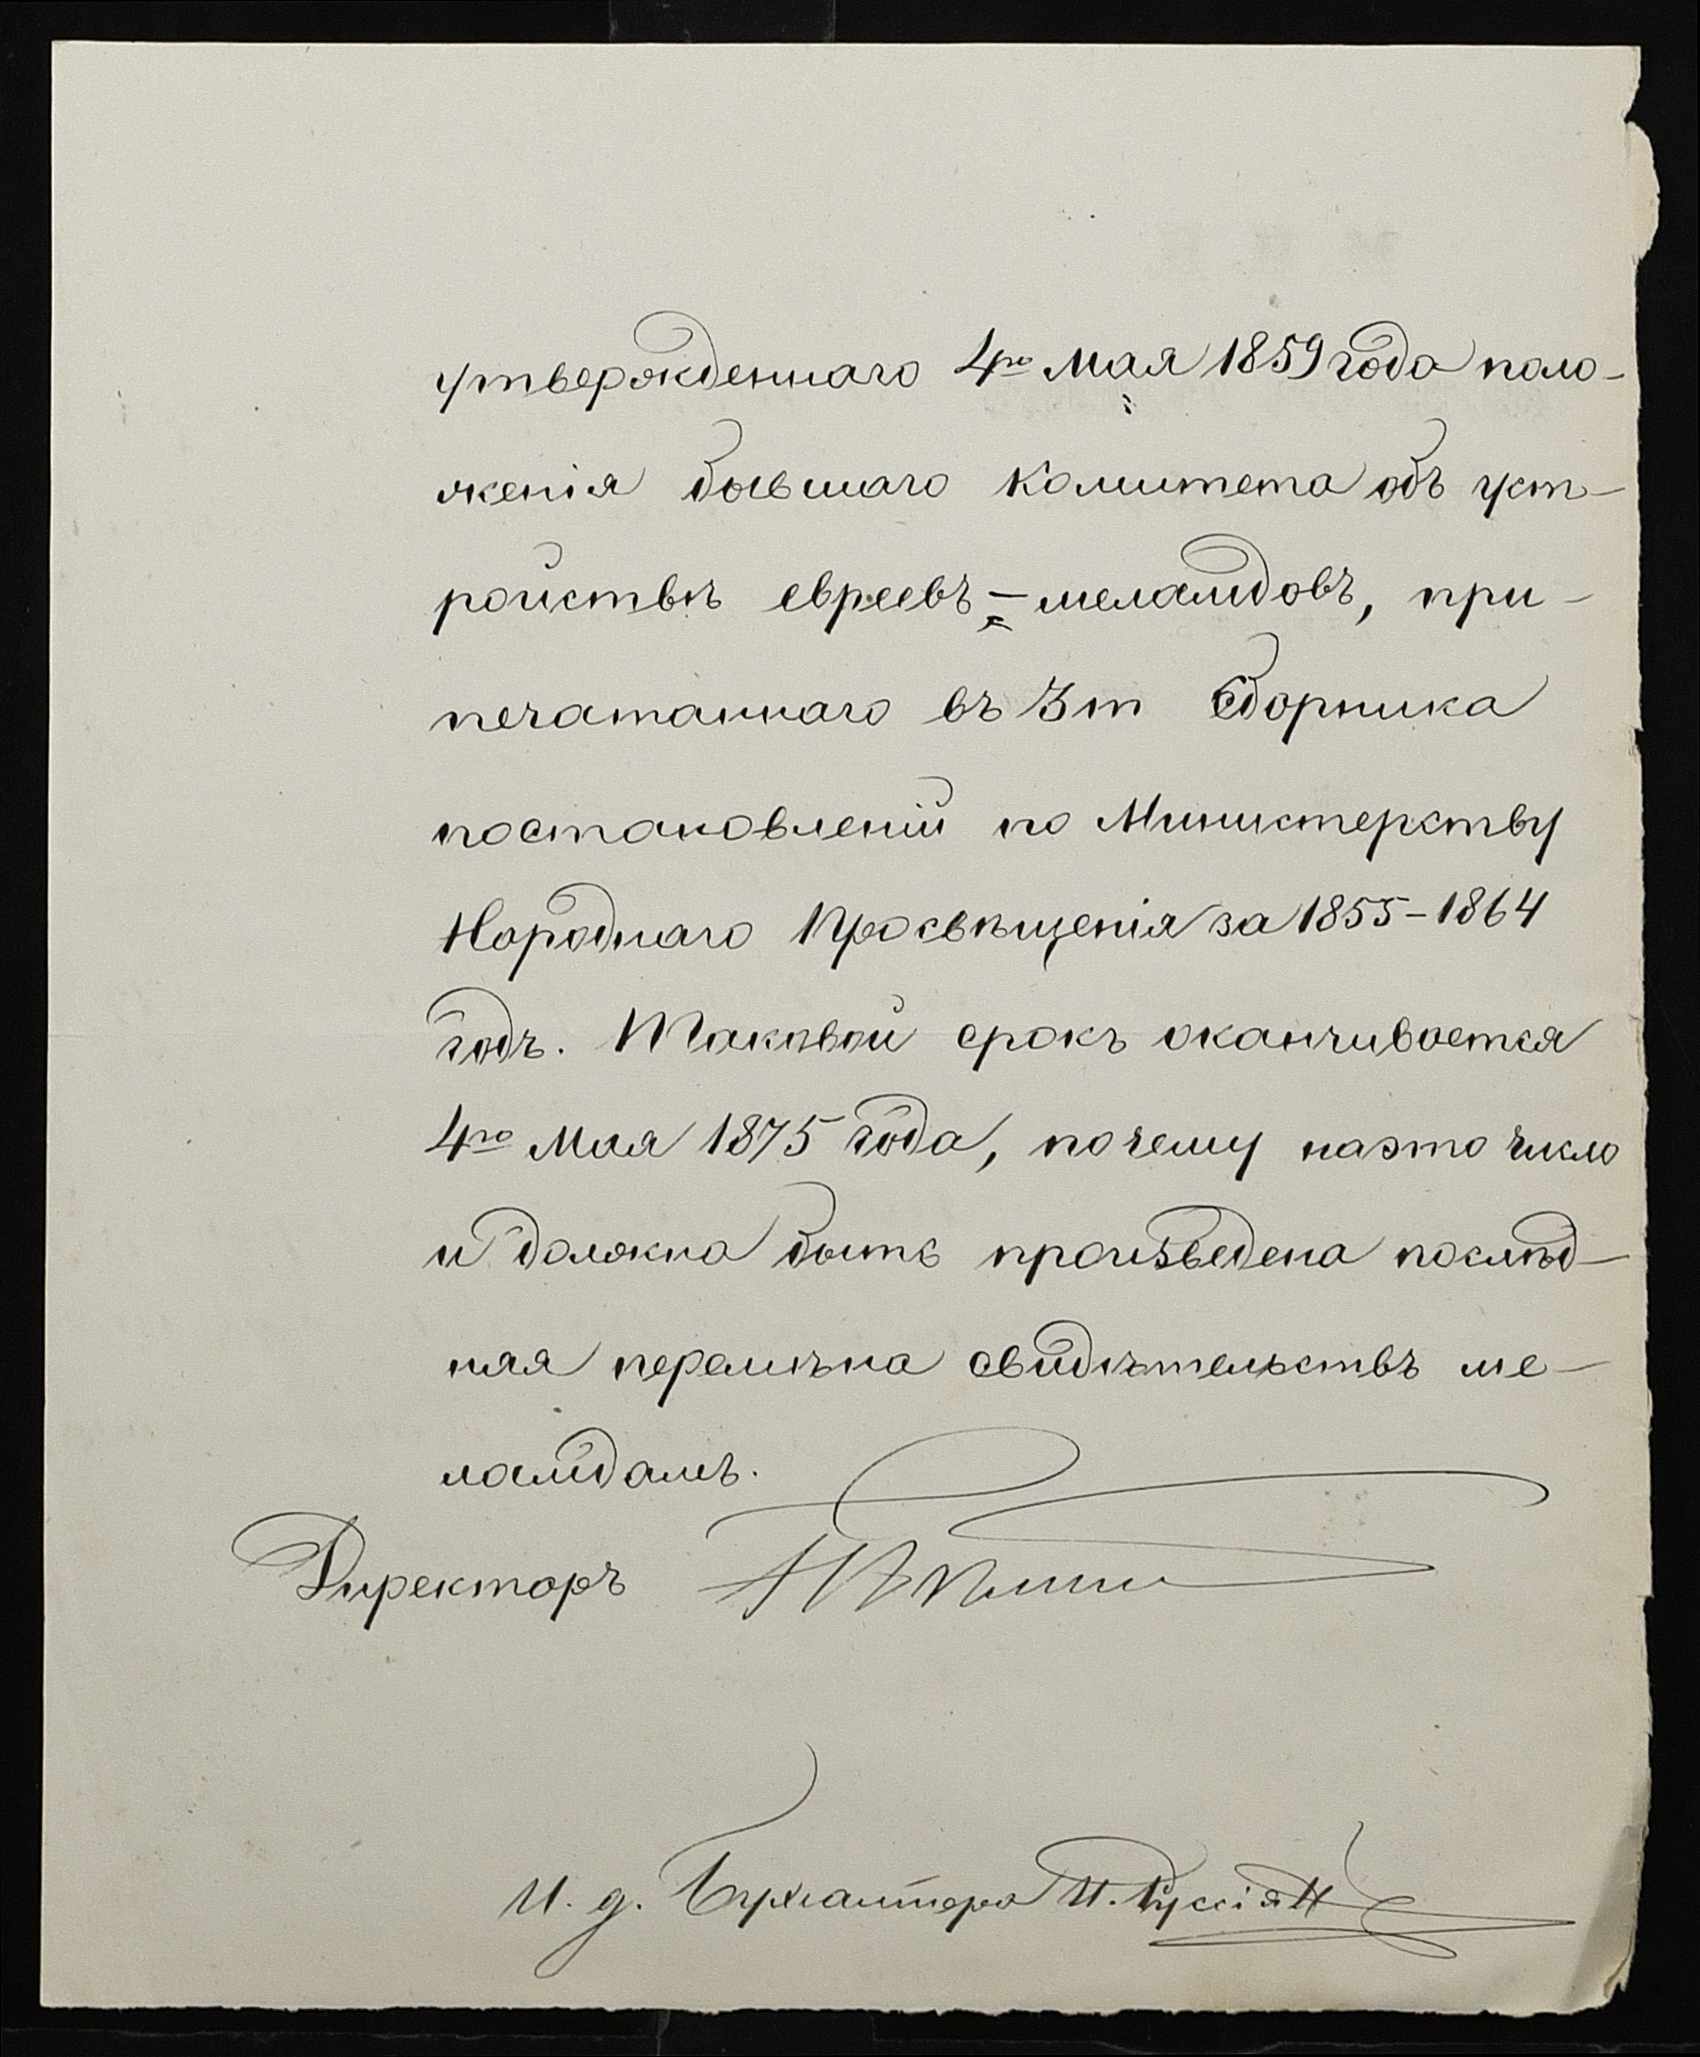 утвержденнаго 4го Мая 1859 года поло-
женія бывшаго Комитета объ уст-
ройствѣ евреевъ-меламдовъ, при-
печатаннаго въ 3 т Сборника
постановленій по Министерству
Народнаго Просвѣщенія за 1855-1864
годъ. Таковой срокъ оканчивается
4го Мая 1875 года, почему на это число
и должна быть произведена послѣд-
няя перемѣна свидѣтельствъ ме-
ламдамъ.
Директоръ
И. д. Бухгалтера И.